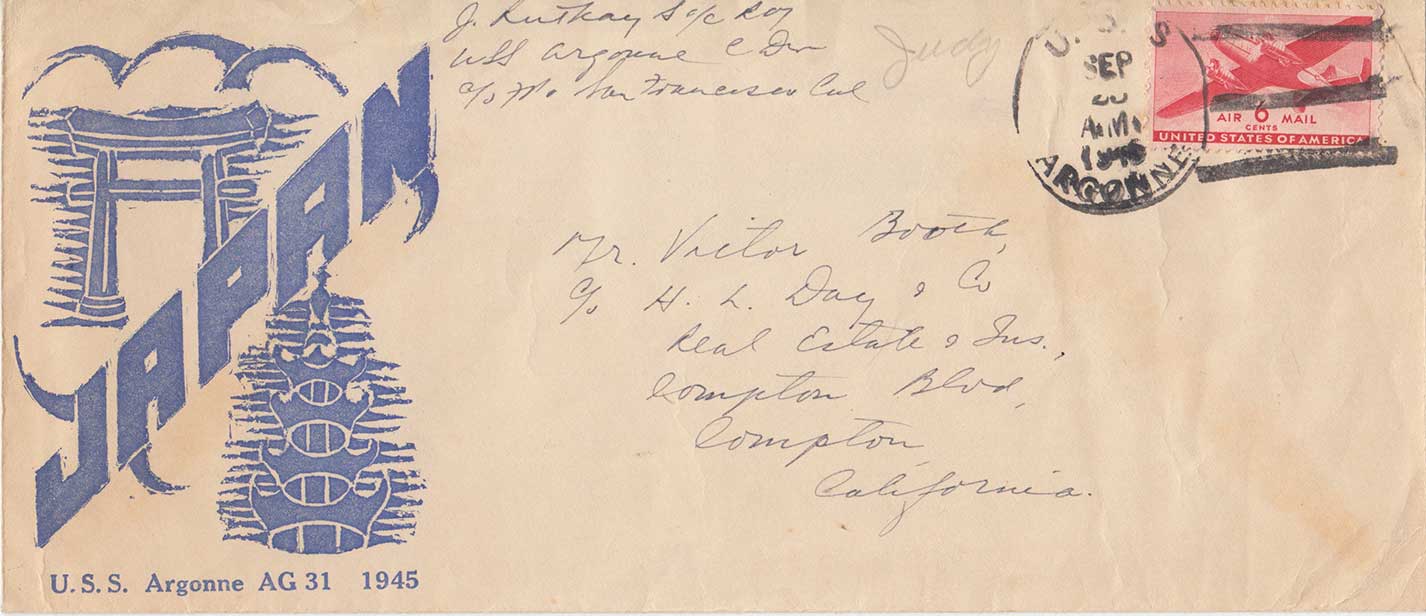 J. Ruthay S c/c
USS Argonne C Div
c/o San Francisco Cal
Judy
U. S. S
SEP
A.M.
1945
ARGONNE
AIR 6 MAIL
CENTS
UNITED STATES OF AMERICA
JAPAN
Mr. Victor Booth,
c/o H. L. Day & Co
Real Estate & Ins.,
Compton Blvd,
Compton
California.
U. S. S. Argonne AG 31 1945